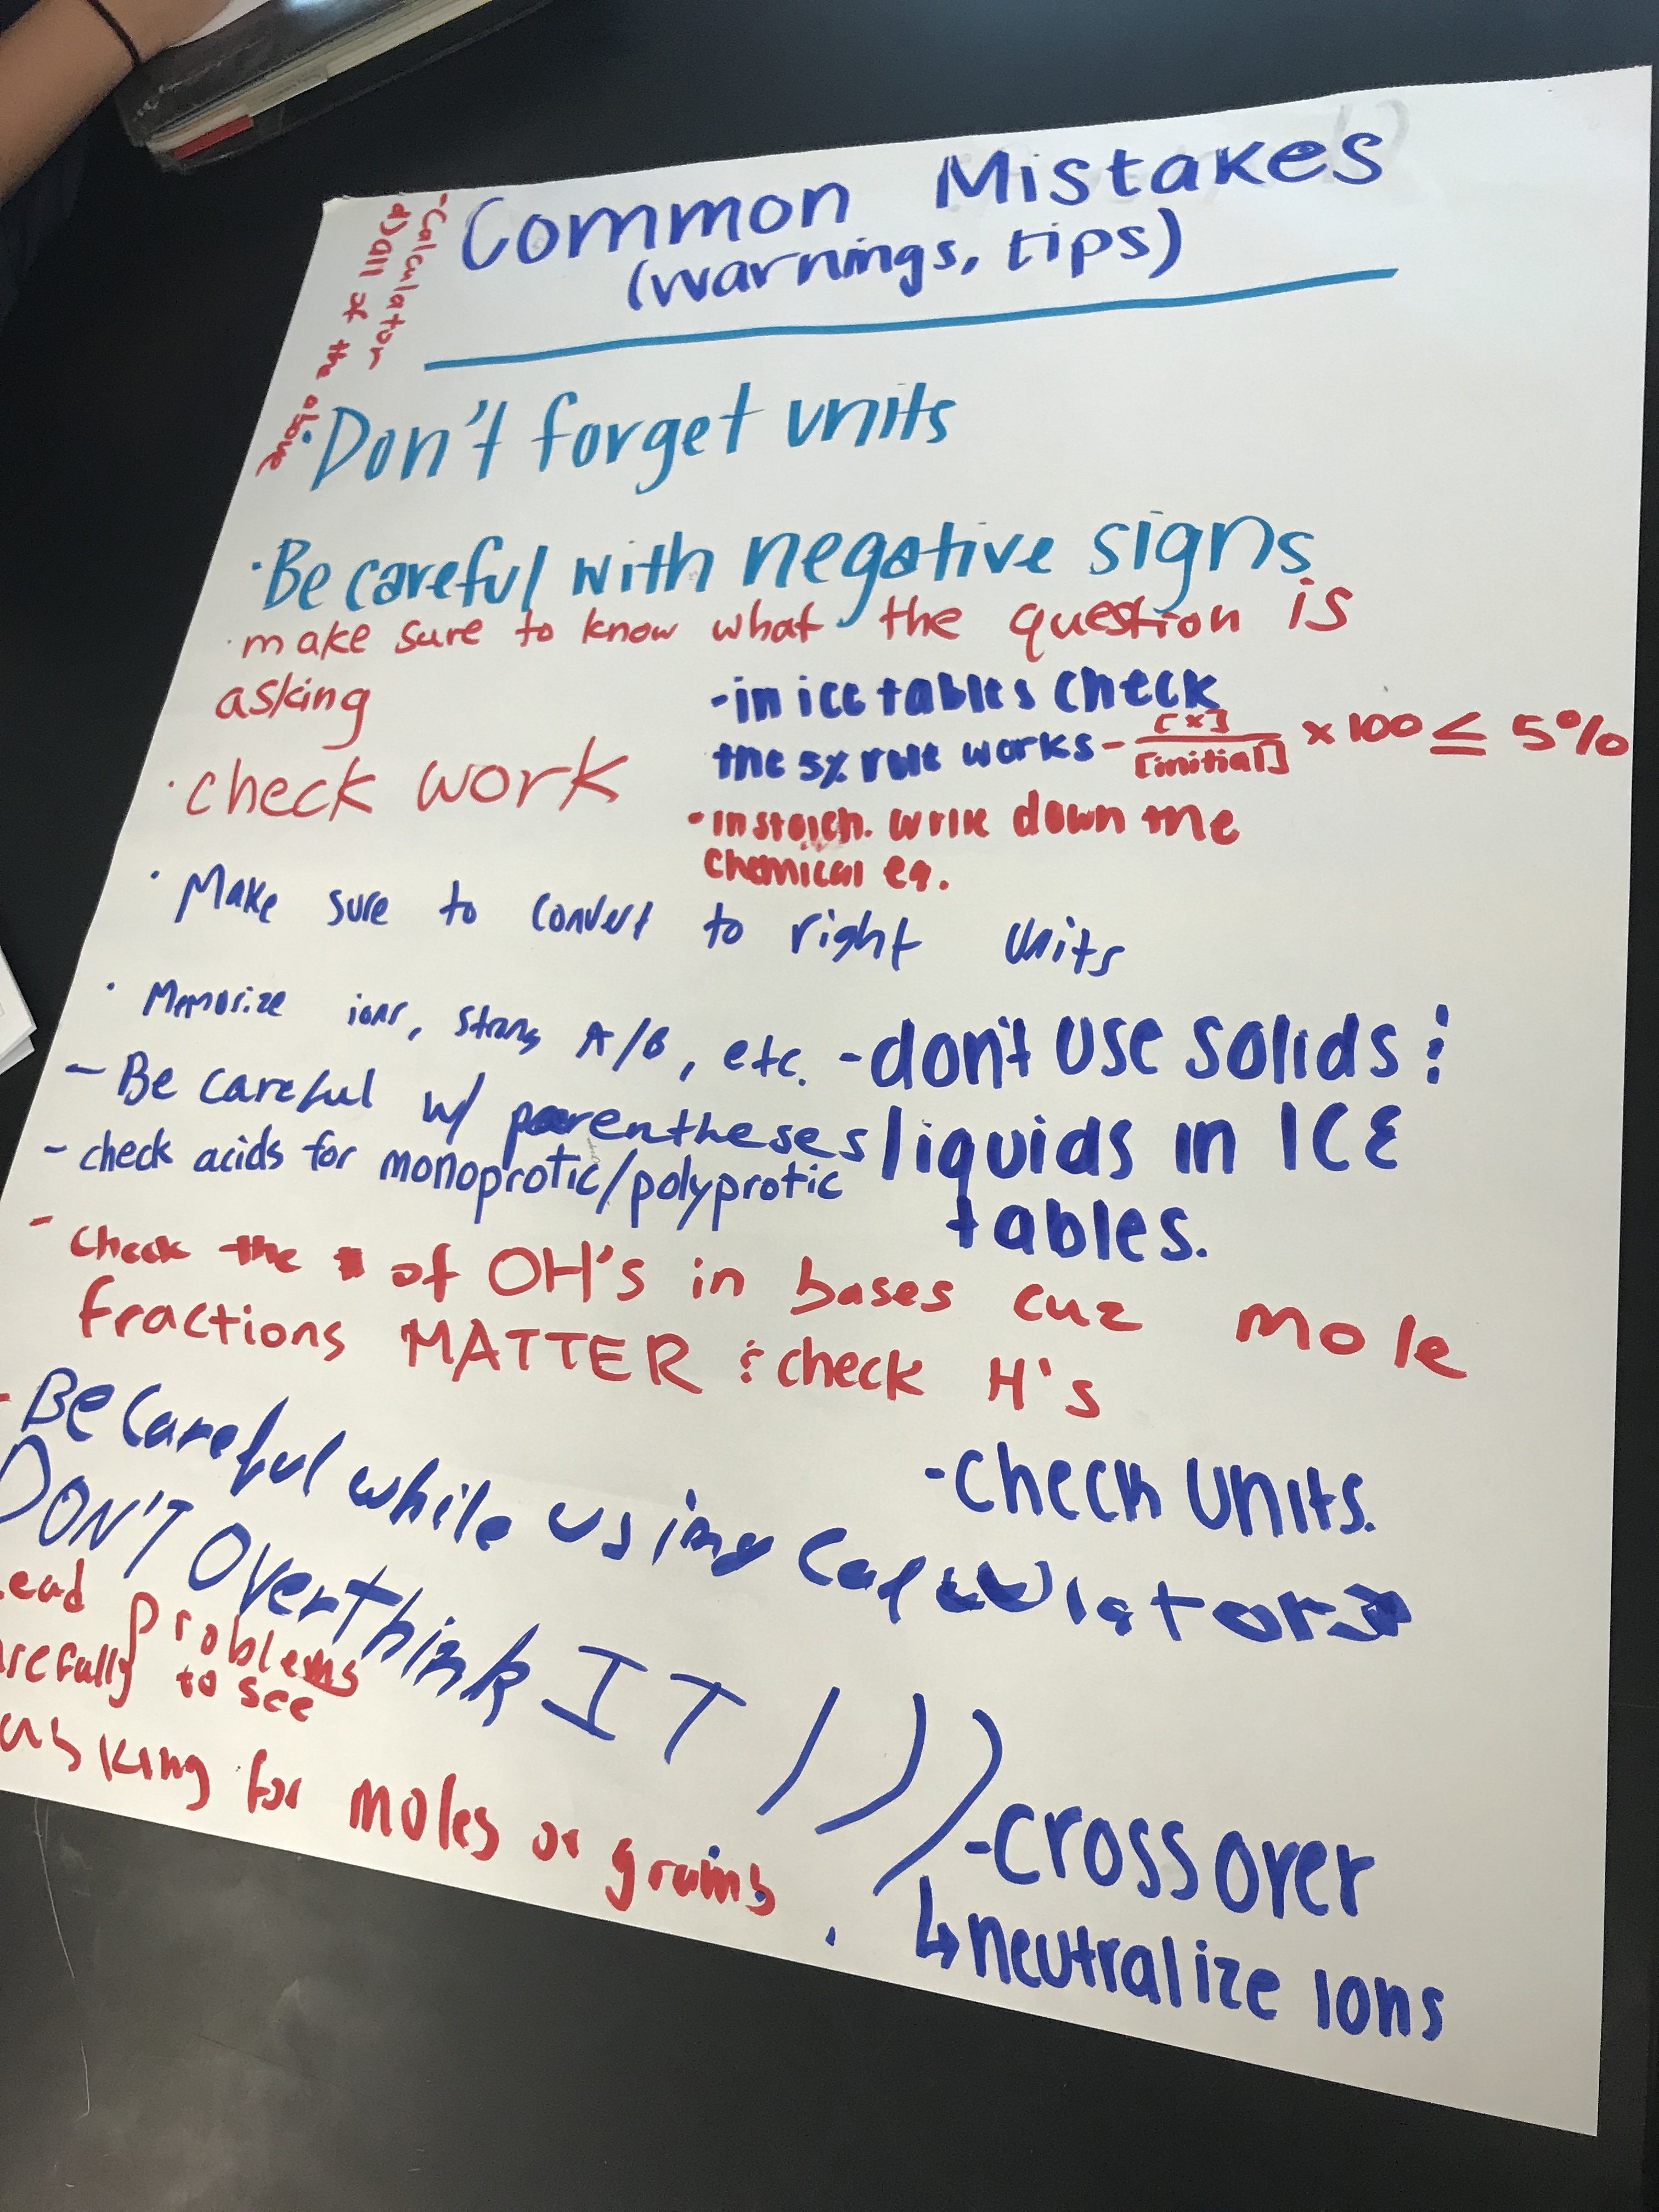 Common Mistakes
(warnings, tips)
-Calculator
d) all of the above
·Don't forget units
·Be careful with negative signs
·make sure to know what the question is
asking
-in ice tables check
the 5% rule works - [x]/[initial] × 100 ≤ 5%
·check work
-in stoich. write down the
chemical eq.
·Make sure to convert to right units
·Memorize ions, strong A/B, etc.
-don't use solids &
liquids in ICE
tables.
- Be careful w/ parentheses
- check acids for monoprotic/polyprotic
- check the # of OH's in bases cuz mole
fractions MATTER & check H's
- Be careful while using calculator
-check units.
DON'T Overthink IT )))
ead Problems
refully to see
asking for moles or grams
-crossover
↳neutralize ions